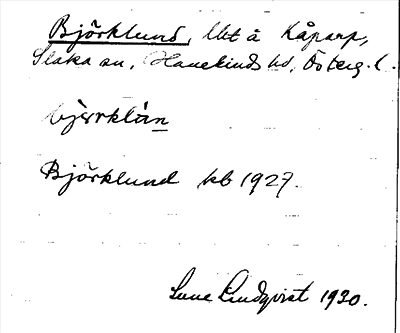 Björklund, lht å Kåparp,
Slaka sn, Hanekinds hd, Österg. l.
bjœrklán
Björklund kb 1927.
Sune Lindqvist 1930.